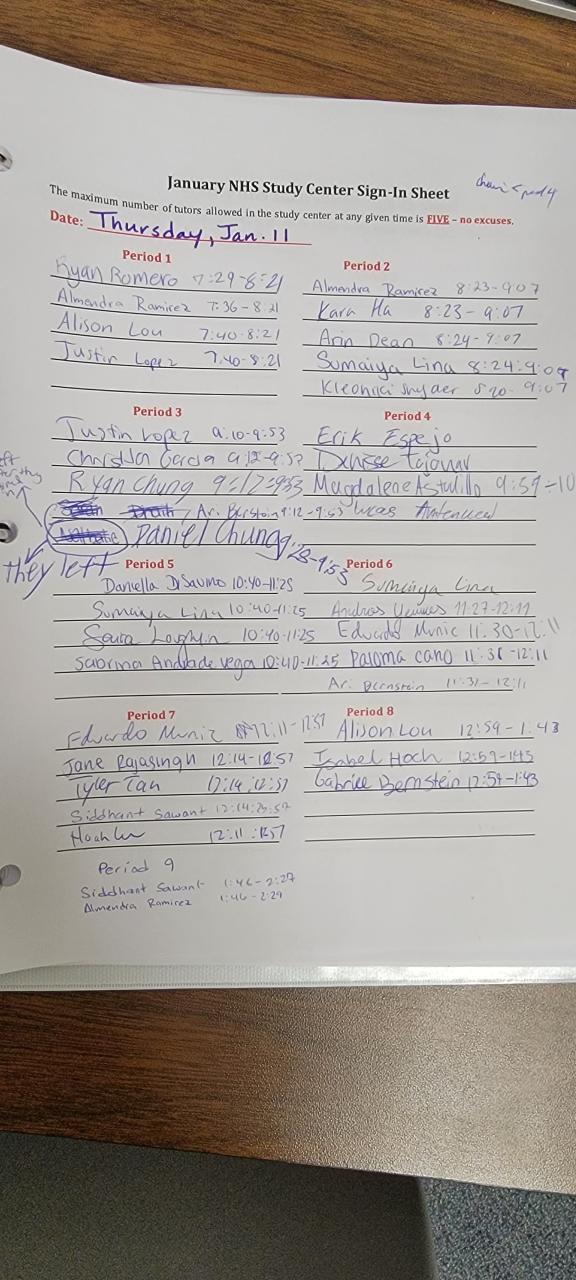 January NHS Study Center Sign-In Sheet
The maximum number of tutors allowed in the study center at any given time is FIVE – no excuses.
Date: Thursday, Jan. 11
Period 1
Ryan Romero 7:29-8:21
Almendra Ramirez 7:36-8:21
Alison Lou 7:40-8:21
Justin Lopez 7:40-8:21
Period 2
Almendra Ramirez 8:23-9:07
Kara Ha 8:23-9:07
Arin Dean 8:24-9:07
Sumaiya Lina 8:24-9:07
8:20-9:07
Period 3
Justin Lopez 9:10-9:53
Garcia 9:12-9:53
Ryan Chung 9:12-9:53
Ari Bernstein 9:12-9:53
Daniel Chung 9:28-9:53
they left
Period 4
Erik Espejo
Denisse
Magdalene Astudillo 9:59-10
Lucas
Period 5
Daniella DiSavino 10:40-11:25
Sumaiya Lina 10:40-11:25
Saira 10:40-11:25
Sabrina Andrade Vega 10:40-11:25
Period 6
Sumaiya Lina
Andres 11:27-12:11
Eduardo Muniz 11:30-12:11
Paloma Cano 11:31-12:11
Ari Bernstein 11:31-12:11
Period 7
Eduardo Muniz 12:11-12:57
Jane Rajasingh 12:14-12:57
Tyler Tan 12:14-12:57
Siddhant Sawant
12:11-12:57
Period 8
Alison Lou 12:59-1:43
Isabel Hoch 12:59-1:43
Gabriel Bernstein 12:59-1:43
Period 9
Siddhant Sawant 1:46-2:29
Almendra Ramirez 1:46-2:29